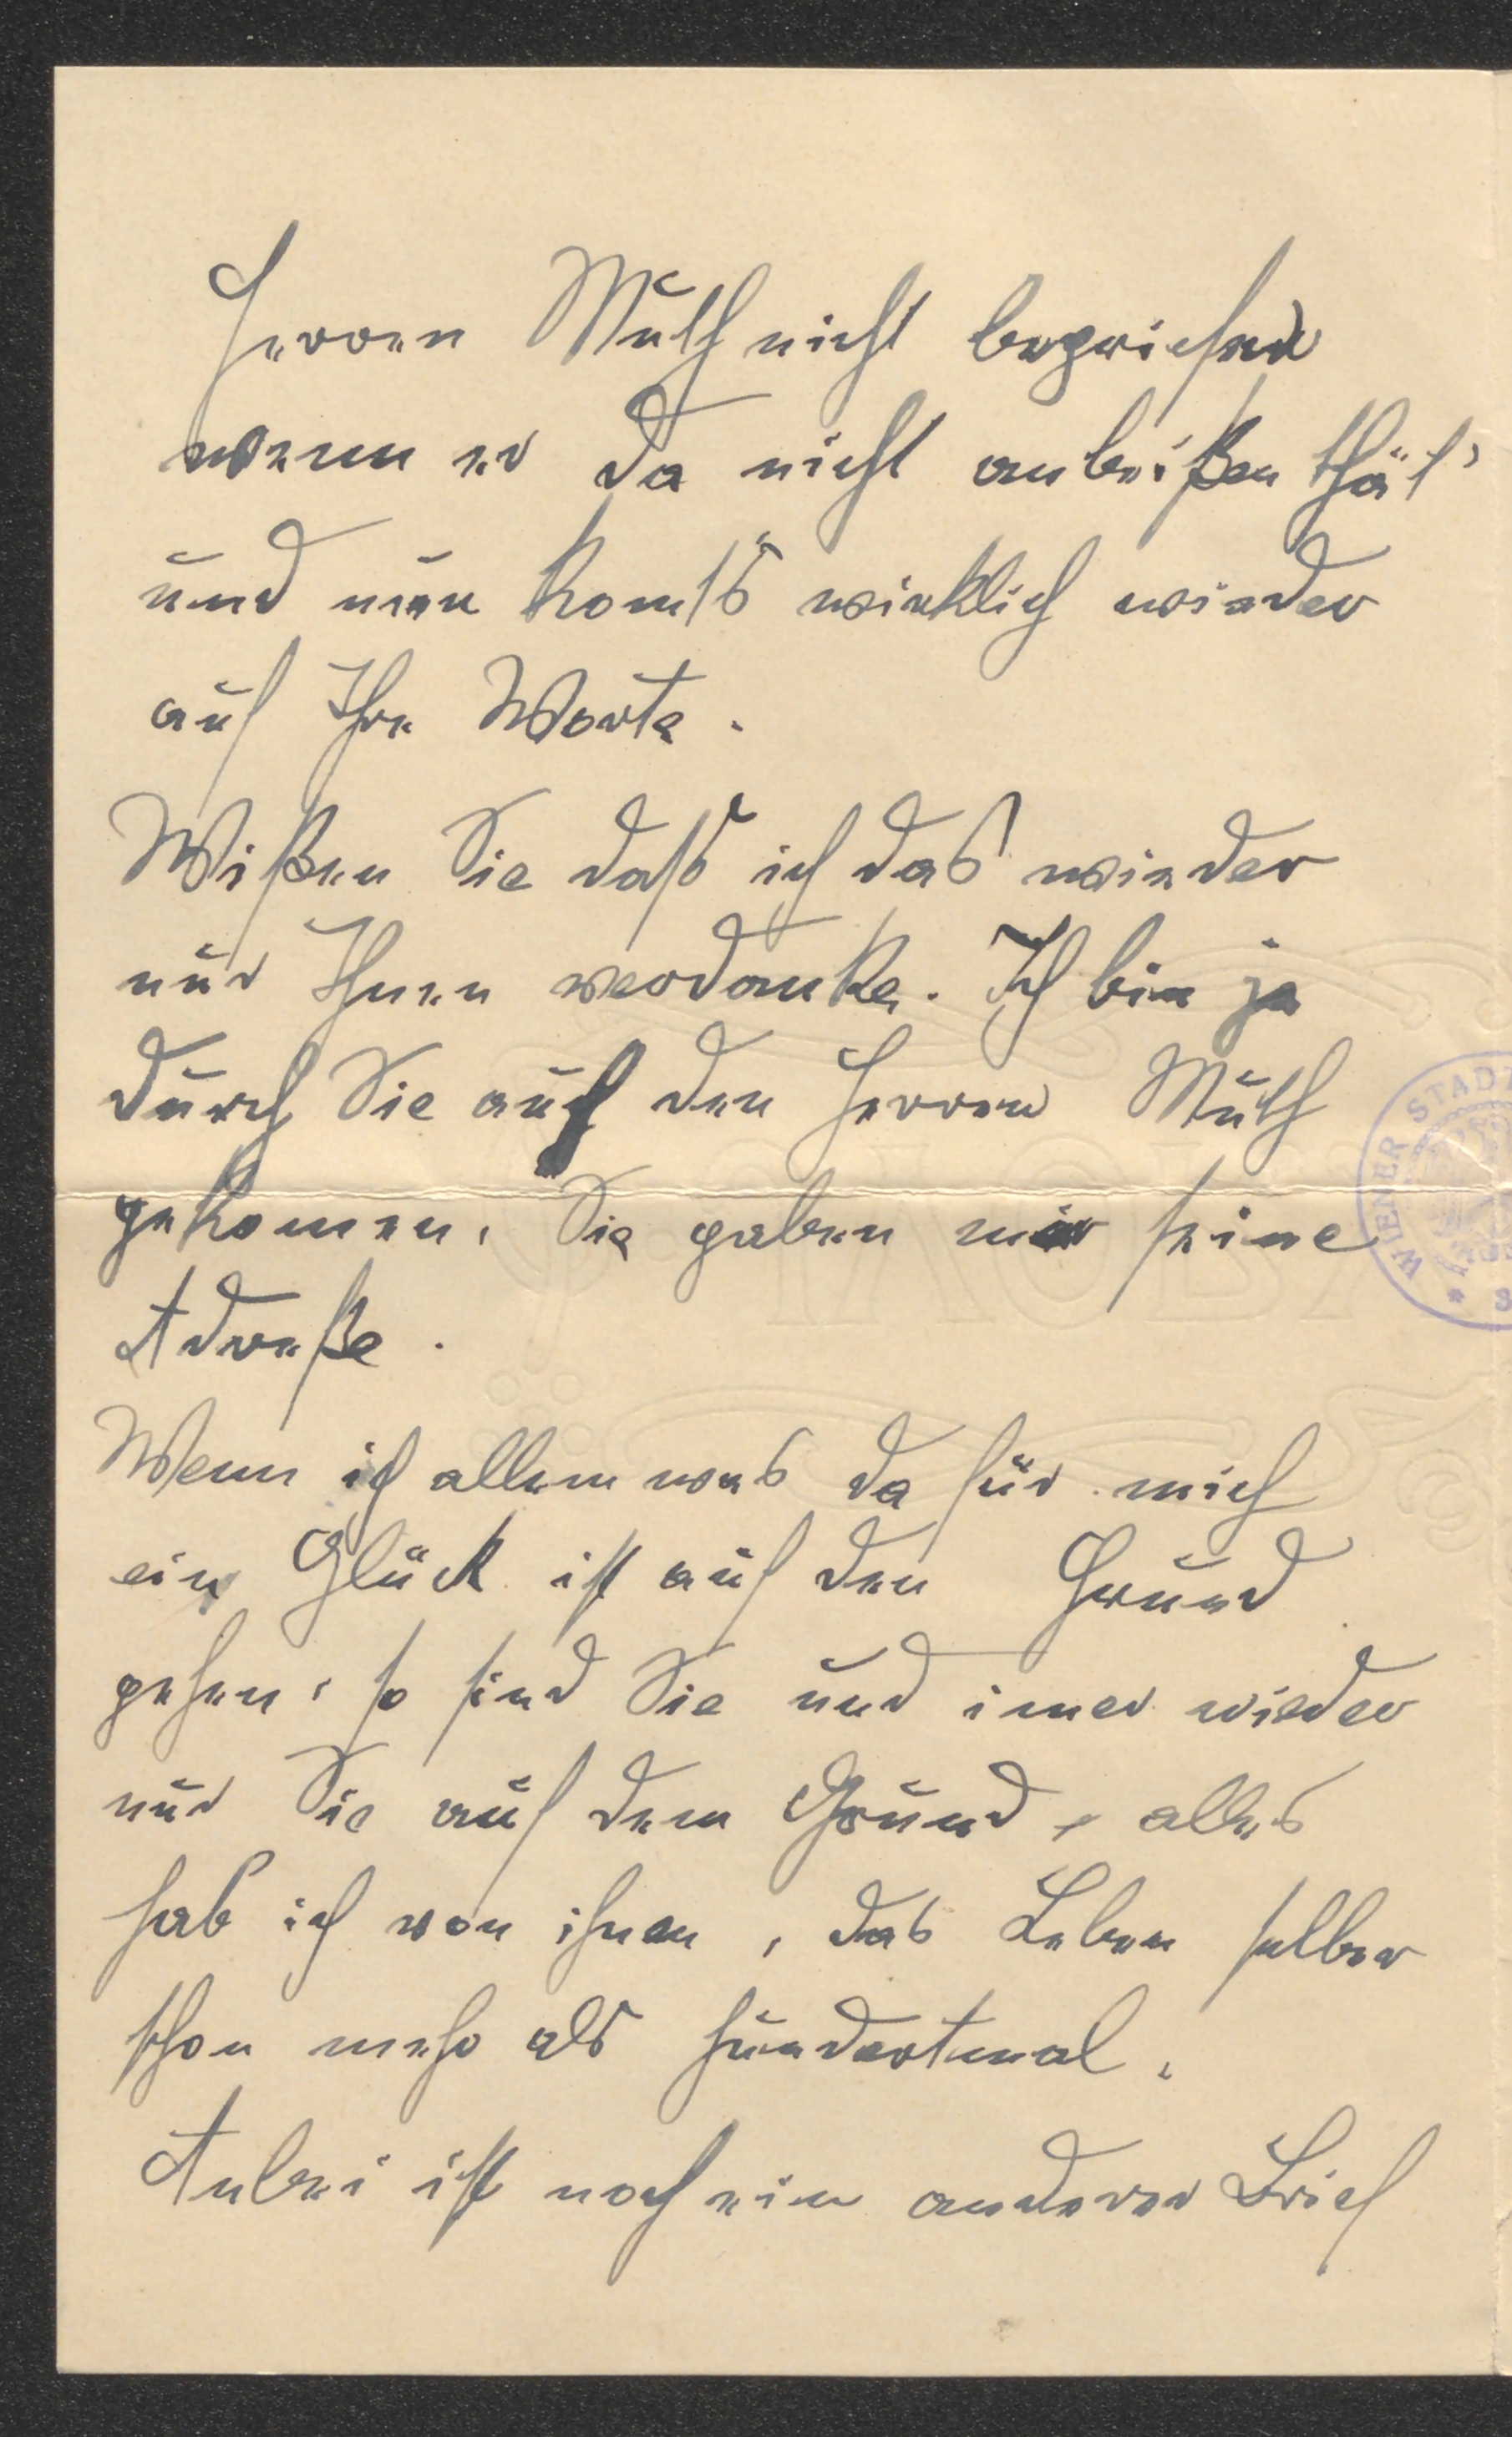 Herren Muth nicht begreifen
wenn er da nicht anbeißen thät'
und nun komt's wirklich wieder
auf Ihre Worte.
Wißen Sie daß ich das wieder
nur Ihnen verdanke. Ich bin ja
durch Sie auf den Herren Muth
gekomen, Sie gaben mir seine
Adreße.
Wenn ich allem was da für mich
ein Glück ist auf den Grund
gehen, so sind Sie und imer wieder
nur Sie auf dem Grund, alles
hab ich von ihnen, das Leben selber
schon mehr als hundertmal.
Anbei ist noch ein anderer Brief
WIENER STADT